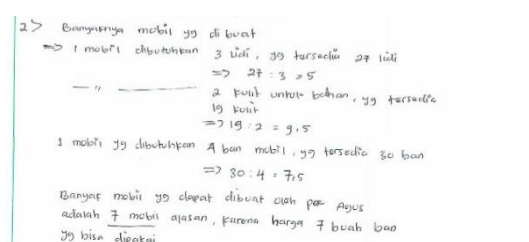 2> Banyaknya mobil yg di buat
=> 1 mobil dibutuhkan 3 lidi, yg tersedia 27 lidi
=> 27 : 3 = 5
— " —
2 kulit untuk bahan, yg tersedia
19 kulit
=> 19 : 2 = 9,5
1 mobil yg dibutuhkan 4 ban mobil, yg tersedia 30 ban
=> 30 : 4 = 7,5
Banyak mobil yg dapat dibuat oleh pak Agus
adalah 7 mobil alasan, karena hanya 7 buah ban
yg bisa dipakai